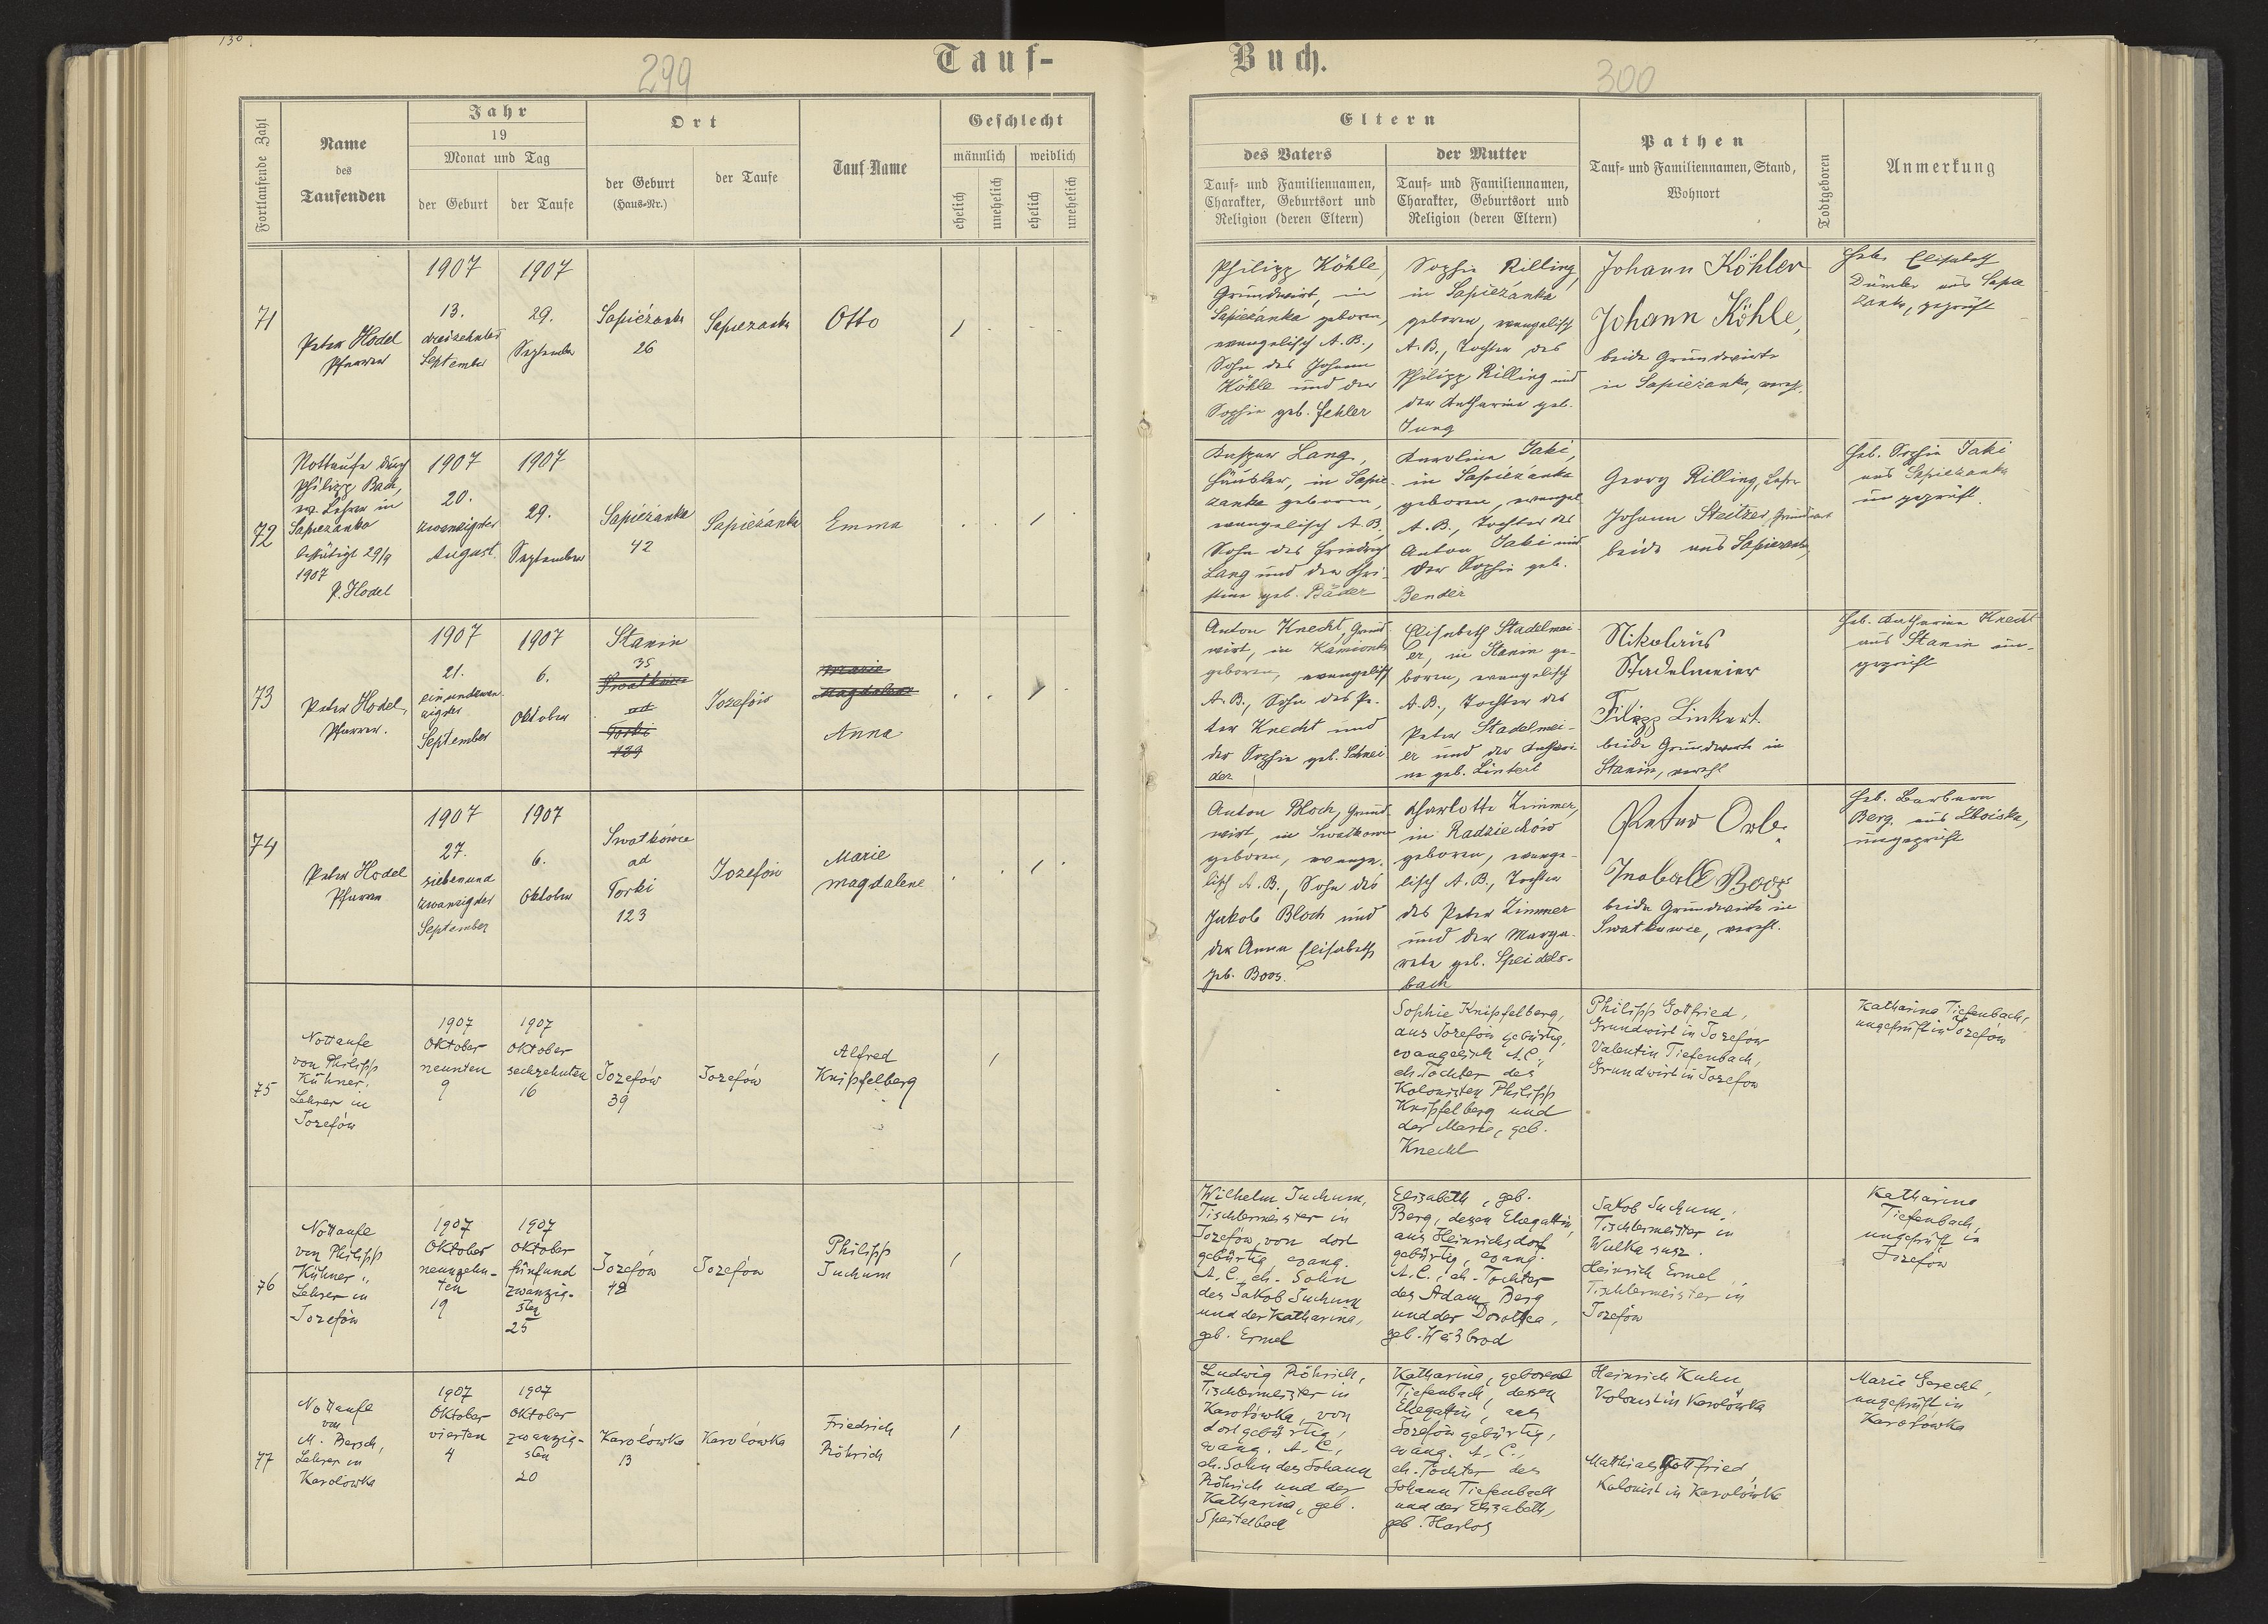 130.
299
Tauf-
Buch.
300
Fortlaufende Zahl
Name
des
Taufenden
Jahr
19
Monat und Tag
der Geburt
der Taufe
Ort
der Geburt
(Haus-Nr.)
der Taufe
Tauf-Name
Geschlecht
männlich
weiblich
ehelich
unehelich
ehelich
unehelich
Eltern
des Vaters
Tauf- und Familiennamen,
Charakter, Geburtsort und
Religion (deren Eltern)
der Mutter
Tauf- und Familiennamen,
Charakter, Geburtsort und
Religion (deren Eltern)
Pathen
Tauf- und Familiennamen, Stand,
Wohnort
Todtgeboren
Anmerkung
71
Peter Hodel
Pfarrer
1907
13.
dreizehnter
September
1907
29.
September
Sapieżanka
26
Sapiezanka
Otto
1
Philipp Köhle,
Grundwirt, in
Sapieżanka geboren,
evangelisch A.B.,
Sohn des Johann
Köhle und der
Sophie geb. Fehler
Sophie Rilling,
in Sapieżanka
geboren, evangelisch
A.B., Tochter des
Philipp Rilling und
der Katharina geb.
Jung
Johann Köhler
Johann Köhle,
beide Grundwirte
in Sapieżanka, vereh.
Heb. Elisabeth
Däuber aus Sapie
zanka, geprüft
72
Nottaufe durch
Philipp Bach,
ev. Lehrer in
Sapieżanka
bestätigt 29/9
1907
P. Hodel
1907
20.
zwanzigster
August
1907
29.
September
Sapieżanka
42
Sapieżanka
Emma
1
Kaspar Lang,
Häusler, in Sapie
zanka geboren,
evangelisch A.B.,
Sohn des Friedrich
Lang und der Chri-
stine geb. Bäder
Karolina Jaki,
in Sapieżanka
geboren, evangel.
A.B., Tochter des
Anton Jaki und
der Sophie geb.
Bender
Georg Rilling, Lehrer
Johann Steitzer, Grundwirt
beide aus Sapiezanka
Heb. Sophie Jaki
aus Sapiezanka
un geprüft.
73
Peter Hodel,
Pfarrer.
1907
21.
einundzwan-
zigster
September
1907
6.
Oktober
Stanin
35
Swatkowce
ad
Torki
123
Jozefów
Marie
Magdalene
Anna
1
Anton Knecht, Grund-
wirt, in Kamionka
geboren, evangelisch
A.B., Sohn des Pe-
ter Knecht und
der Sophie geb. Schnei-
der
Elisabeth Stadelmei-
er, in Stanin ge-
boren, evangelisch
A.B., Tochter des
Peter Stadelmei-
er und der Kathari-
ne geb. Linkert
Nikolaus
Stadelmeier
Filipp Linkert.
beide Grundwirte in
Stanin, vereh.
Heb. Katharina Knecht
aus Stanin un-
geprüft
74
Peter Hodel
Pfarrer
1907
27.
siebenund
zwanzigster
September
1907
6.
Oktober
Swatkówce
ad
Torki
123
Jozefów
Marie
Magdalene
1
Anton Bloch, Grund-
wirt, in Swatkowce
geboren, evange-
lisch A.B., Sohn des
Jakob Bloch und
der Anna Elisabeth
geb. Boos.
Charlotte Zimmer,
in Radziechów
geboren, evange-
lisch A.B., Tochter
des Peter Zimmer
und der Marga-
rete geb. Speidels-
bach
Boos
beide Grundwirte in
Swatkowce, vereh.
Heb. Barbara
Berg, aus Zboiska,
ungeprüft
75
Nottaufe
von Philipp
Kühner,
Lehrer in
Jozefów
1907
Oktober
neunten
9
1907
Oktober
sechzehnten
16
Jozefów
39
Jozefów
Alfred
Knipfelberg
1
Sophie Knipfelberg,
aus Jozefów gebürtig,
evangelisch A.C.,
eh. Tochter des
Kolonisten Philipp
Knipfelberg und
der Marie, geb.
Knecht
Philipp Gottfried,
Grundwirt in Jozefów
Valentin Tiefenbach,
Grundwirt in Jozefów
Katharina Tiefenbach,
ungeprüft in Jozefów
76
Nottaufe
von Philipp
Kühner,
Lehrer in
Jozefów
1907
Oktober
neunzehn-
ten
19
1907
Oktober
fünfund
zwanzig-
sten
25
Jozefów
48
Jozefów
Philipp
Juchum
1
Wilhelm Juchum,
Tischlermeister in
Jozefów, von dort
gebürtig, evang.
A.C., eh. Sohn
des Jakob Juchum
und der Katharina,
geb. Ermel
Elisabeth, geb.
Berg, dessen Ehegattin,
aus Heinrichsdorf
gebürtig, evang.
A.C., eh. Tochter
des Adam Berg
und der Dorothea,
geb. Weißbrod
Jakob Juchum,
Tischlermeister in
Wulka susz.
Heinrich Ermel,
Tischlermeister in
Jozefów
Katharina
Tiefenbach,
ungeprüft in
Jozefów
77
Nottaufe
von
M. Bersch,
Lehrer in
Karolówka
1907
Oktober
vierten
4
1907
Oktober
zwanzig-
sten
20
Karolówka
13
Karolówka
Friedrich
Röhrich
1
Ludwig Röhrich,
Tischlermeister in
Karolówka, von
dort gebürtig,
evang. A.C.,
eh. Sohn des Johann
Röhrich und der
Katharina, geb.
Speitelbach
Katharina, geborene
Tiefenbach, dessen
Ehegattin, aus
Jozefów gebürtig,
evang. A.C.,
eh. Tochter des
Johann Tiefenbach
und der Elisabeth,
geb. Harlos
Heinrich Kuhn
Kolonist in Karolówka
Mathias Gottfried,
Kolonist in Karolówka
Marie Gerecht,
ungeprüft in
Karolówka